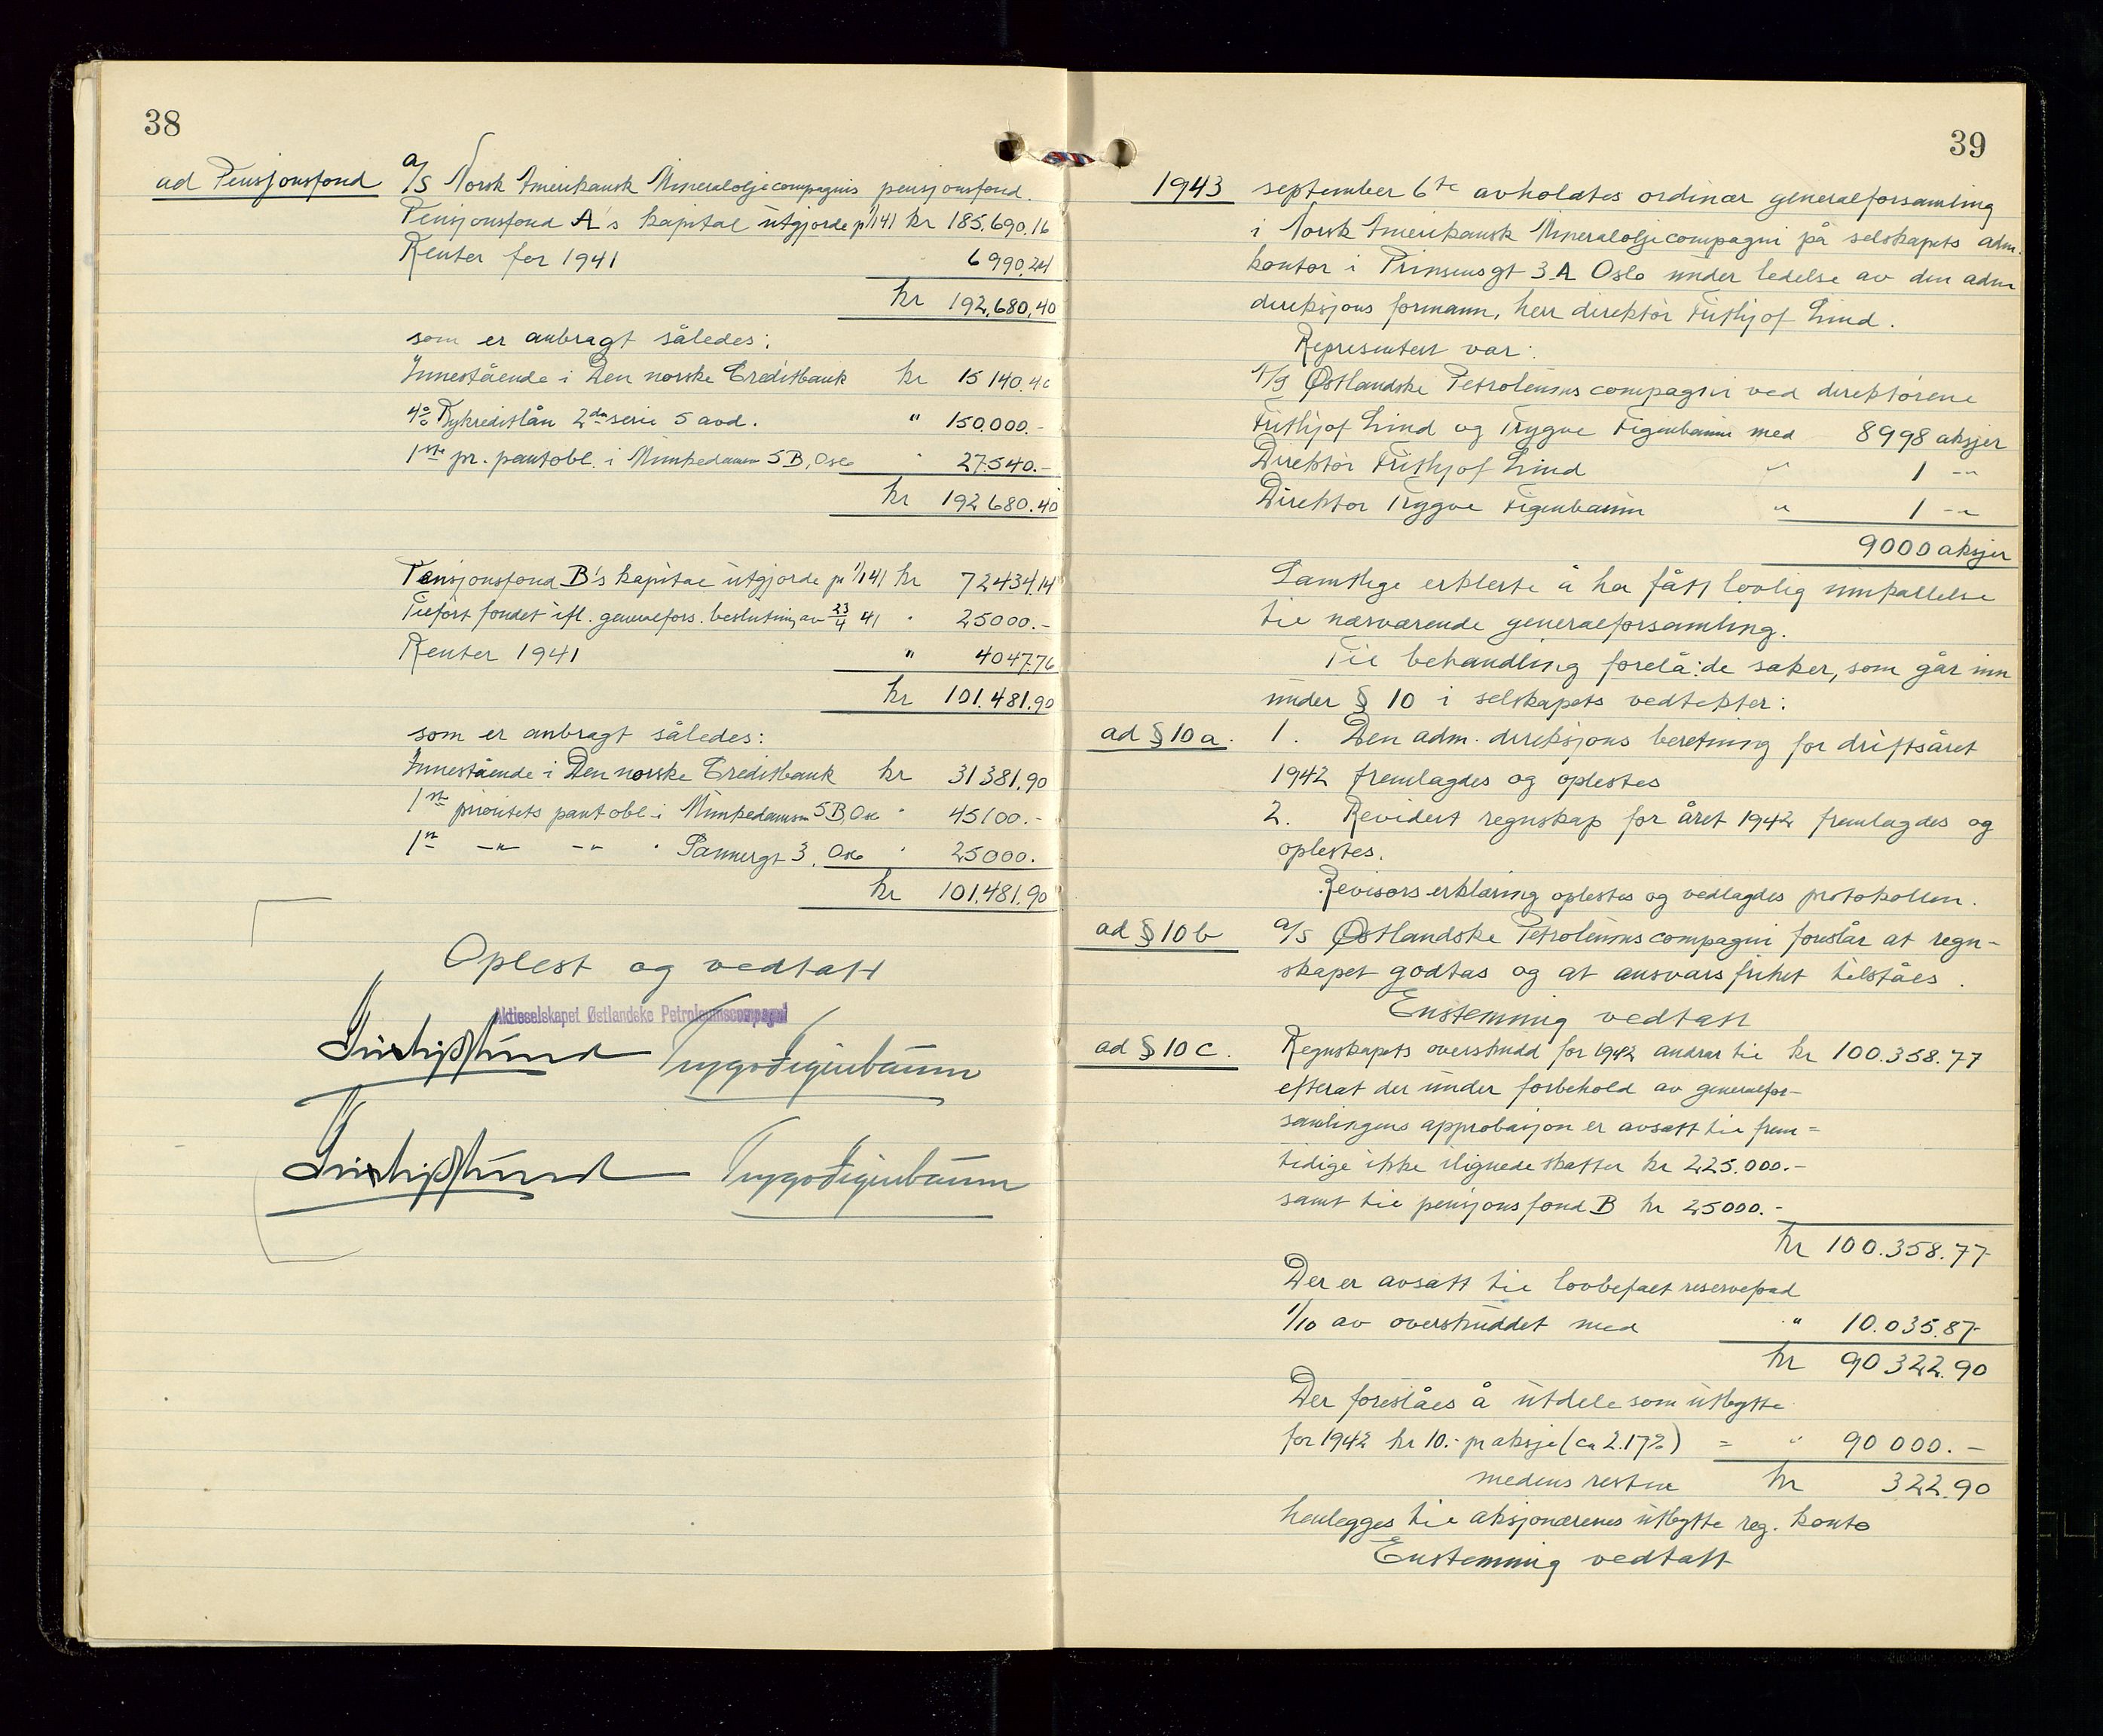 38
ad Pensjonsfond A/S Norsk Amerikansk Mineraloljecompagnis pensjonsfond.
Pensjonsfond A's kapital utgjorde pr 1/1 41 kr 185.690.16
Renter for 1941 6990.24
kr 192.680.40
som er anbragt således:
Innestående i Den norske Creditbank kr 15140.40
4% Bykreditlån 2den serie 5 avd. " 150.000.-
1ste pr. pantobl. i Munkedamsv 5B, Oslo " 27.540.-
kr 192680.40
Pensjonsfond B's kapital utgjorde pr 1/1 41 kr 72434.14
Tilført fondet ifl. generalfors. beslutning av 23/4 41 " 25000.-
Renter 1941 " 4047.76
kr 101.481.90
som er anbragt således:
Innestående i Den norske Creditbank kr 31381.90
1ste prioritets pantobl. i Munkedamsv 5B, Oslo " 45100.-
1ste -"- -"- " Sannergt 3, Oslo " 25000.
kr 101.481.90
Oplest og vedtatt
Aktieselskapet Østlandske Petroleumscompagni
Frithjof Lind Trygve Figenbaum
Frithjof Lind Trygve Figenbaum
39
1943 september 6te avholdtes ordinær generalforsamling
i Norsk Amerikansk Mineraloljecompagni på selskapets adm.
kontor i Prinsensgt 3A Oslo under ledelse av den adm
direksjons formann, herr direktør Frithjof Lind.
Representert var:
A/S Østlandske Petroleumscompagni ved direktørene
Frithjof Lind og Trygve Figenbaum med 8998 aksjer
Direktør Frithjof Lind " 1 -"-
Direktør Trygve Figenbaum " 1 -"-
9000 aksjer
Samtlige erklærte å ha fått lovlig innkallelse
til nærværende generalforsamling.
Til behandling forelå: de saker, som går inn
under § 10 i selskapets vedtekter:
ad § 10 a. 1. Den adm. direksjons beretning for driftsåret
1942 fremlagdes og oplestes
2. Revidert regnskap for året 1942 fremlagdes og
oplestes.
Revisors erklæring oplestes og vedlagdes protokollen.
ad § 10 b A/S Østlandske Petroleumscompagni foreslår at regn-
skapet godtas og at ansvarsfrihet tilståes.
Enstemmig vedtatt
ad § 10 c. Regnskapets overskudd for 1942 andrar til kr 100.358.77
efterat der under forbehold av generalfor-
samlingens approbasjon er avsatt til frem=
tidige ikke utlignede skatter kr 225.000.-
samt til pensjonsfond B kr 25000.-
kr 100.358.77
Der er avsatt til lovbefalt reservefond
1/10 av overskuddet med " 10.035.87
kr 90322.90
Der foreslåes å utdele som utbytte
for 1942 kr 10.- pr aksje (ca 2.17%) = " 90000.-
medens resten kr 322.90
henlegges til aksjonærenes utbytte reg. konto
Enstemmig vedtatt